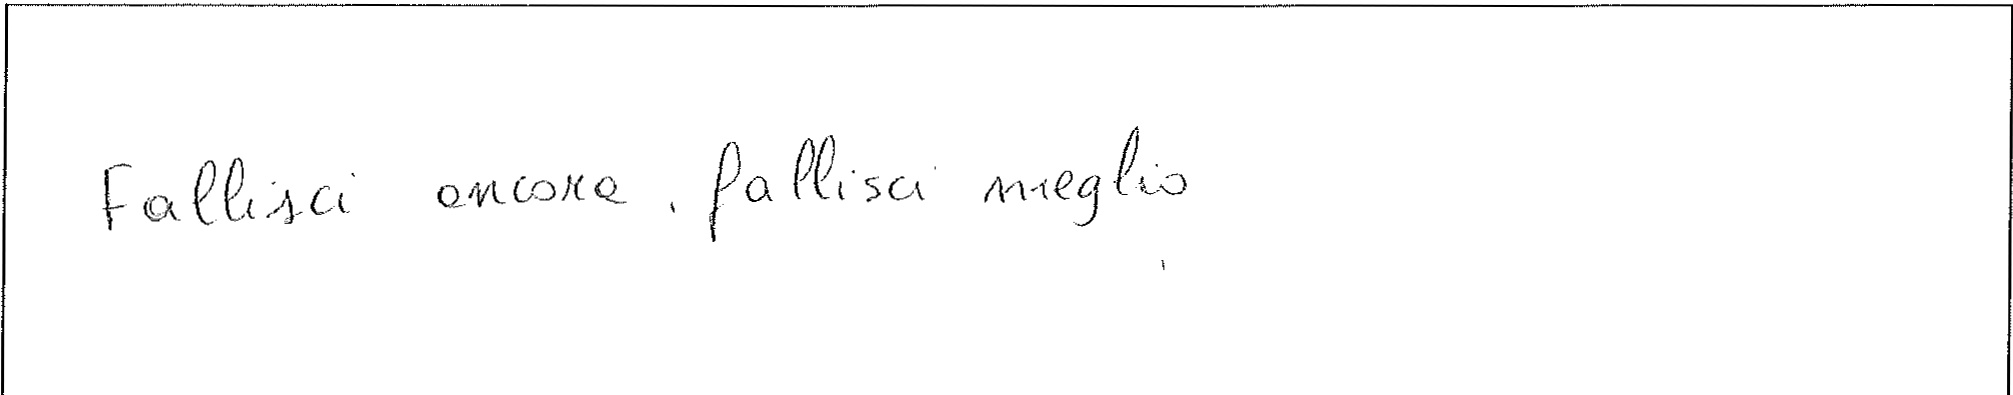 Fallisci ancora, fallisci meglio